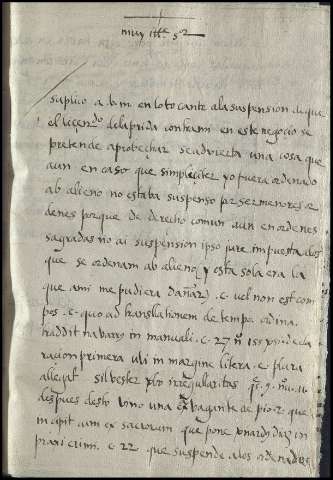 muy ille sr
suplico a v.m. en lo tocante a la suspension de que
el licendo de la prida contra mi en este negocio se
pretende aprobechar se advierta una cosa que
aun en casso que simpleciter yo fuera ordenado
ab alieno no estaba suspenso por ser menores or
denes porque de derecho comun aun en ordenes
sagradas no ai suspension ipso jure impuesta a los
que se ordenam ab alieno y esta sola era la
que a mi me pudiera dañar c. vel non est com
pos. c. quo ad translationem de tempo. ordina.
traddit navarr in manuali. c. 27 nº 155
racion primera ubi in margine litera. e. plura
allegat silvester irregularitas q. 5. nu.
despues desto vino una vagante de pio. 2. que
incipit cum ex sacrorum que pone bernardo diaz in
praxi crimi. c. 22. que suspende a los ordenados